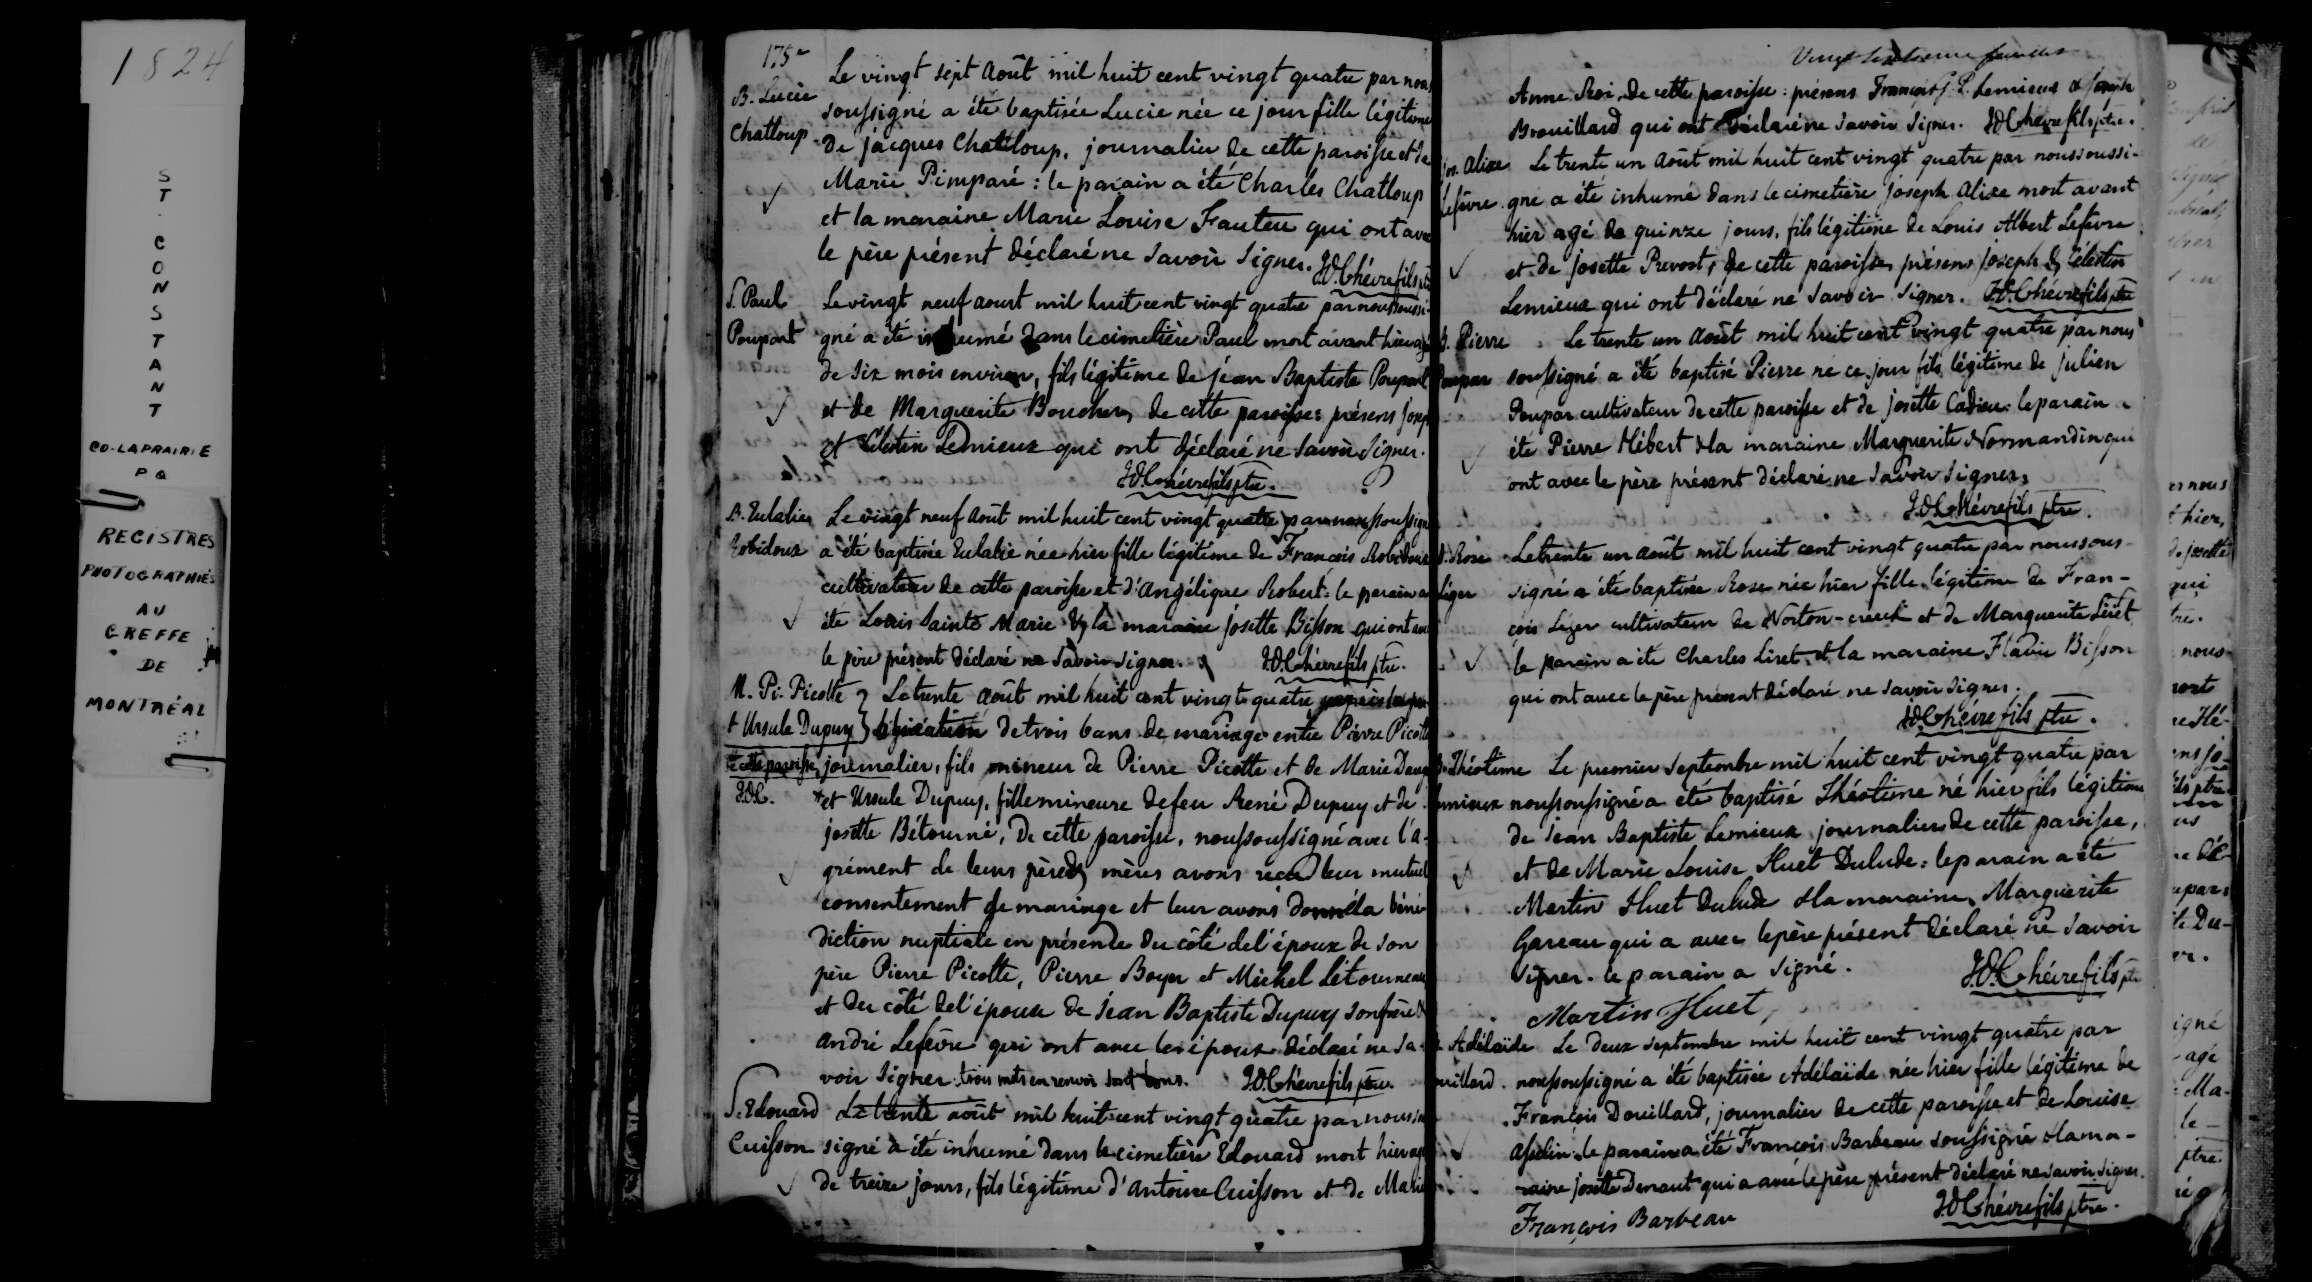 1824
ST. CONSTANT
CO-LAPRAIRIE
P Q
REGISTRES
PHOTOGRAPHIÉS
AU
GREFFE
DE
MONTRÉAL
175e
B. Lucie
Chatloup
Le vingt sept Août mil huit cent vingt quatre par nous
soussigné a été baptisée Lucie née ce jour fille légitime
de jacques Chatloup, journalier de cette paroisse et de
Marie Pimparé : le parain a été Charles Chatloup
et la maraine Marie Louise Fauteu qui ont avec
le père présent déclaré ne savoir signer. J.D. Chévrefils ptre
S. Paul
Poupart
Le vingt neuf aoust mil huit cent vingt quatre par nous soussi-
gné a été inhumé dans le cimetière Paul mort avant hier agé
de six mois environ, fils légitime de jean Baptiste Poupart
et de Marguerite Boucher, de cette paroisse : présens Josep
et Célestin Lemieux qui ont déclaré ne savoir signer.
J.D. Chévrefils ptre.
B. Eulalie
Robidoux
Le vingt neuf Août mil huit cent vingt quatre par nous soussigné
a été baptisée Eulalie née hier fille légitime de François Robidoux
cultivateur de cette paroisse et d'Angélique Robert : le parain a
été Louis Sainte Marie & la maraine josette Bisson qui ont avec
le père présent déclaré ne savoir signer. J.D. Chévrefils ptre.
M. Pi. Picotte
& Ursule Dupuy
Le trente Août mil huit cent vingt quatre après la pu-
blication de trois bans de mariage entre Pierre Picotte
de cette paroisse, journalier, fils mineur de Pierre Picotte et de Marie
J.D.C. + et Ursule Dupuy, fille mineure de feu René Dupuy et de
josette Bétourné, de cette paroisse, nous soussigné avec l'a-
grément de leurs pères & mères avons reçu leur mutuel
consentement de mariage et leur avons donné la béné-
diction nuptiale en présence du côté de l'époux de son
père Pierre Picotte, Pierre Boyer et Michel Létourneau
et du côté de l'épouse de Jean Baptiste Dupuy son frère &
André Lefèvre qui ont avec les époux déclaré ne sa-
voir signer. trois mots en renvoi sont bons. J.D. Chévrefils ptre.
S. Edouard
Cuisson
Le trente août mil huit cent vingt quatre par nous sou
signé a été inhumé dans le cimetière Edouard mort hier agé
de treize jours, fils légitime d'Antoine Cuisson et de Marie
Vingt feuillet
Anne Roi, de cette paroisse : présens François G. P. Lemieux & Joseph
Brouillard qui ont déclaré ne savoir signer. J.D. Chévrefils ptre.
Jos. Alixe
Lefèvre
Le trente un Août mil huit cent vingt quatre par nous soussi-
gné a été inhumé dans le cimetière joseph Alixe mort avant
hier agé de quinze jours, fils légitime de Louis Albert Lefèvre
et de josette Prevost, de cette paroisse, présens joseph & Célestin
Lemieux qui ont déclaré ne savoir signer. J.D. Chévrefils ptre
B. Pierre
Poupar
Le trente un Août mil huit cent vingt quatre par nous
soussigné a été baptisé Pierre né ce jour fils légitime de julien
Poupar cultivateur de cette paroisse et de josette Cadieu : le parain a
été Pierre Hébert & la maraine Marguerite Normandin qui
ont avec le père présent déclaré ne savoir signer,
J.D. Chévrefils ptre.
B. Rose
Léger
Le trente un août mil huit cent vingt quatre par nous sous-
signé a été baptisée Rose née hier fille légitime de Fran-
cois Léger cultivateur de Norton-creek et de Marguerite Liret
le parain a été Charles Liret, et la maraine Flavie Bisson
qui ont avec le père présent déclaré ne savoir signer.
J.D. Chévrefils ptre.
B. Théotime
Lemieux
Le premier septembre mil huit cent vingt quatre par
nous soussigné a été baptisé Théotime né hier fils légitime
de Jean Baptiste Lemieux journalier de cette paroisse,
et de Marie Louise Huet Dulude : le parain a été
Martin Huet Dulude & la maraine, Marguerite
Gareau qui a avec le père présent déclaré ne savoir
signer. le parain a signé. J.D. Chévrefils ptr
Martin Huet
B. Adélaïde
ouillard.
Le deux septembre mil huit cent vingt quatre par
nous soussigné a été baptisée Adélaïde née hier fille légitime de
François Douillard, journalier de cette paroisse et de Louise
Asselin. le parain a été François Barbeau soussigné & la ma-
raine josette Demaut qui a avec le père présent déclaré ne savoir signer.
François Barbeau J.D. Chévrefils ptre.